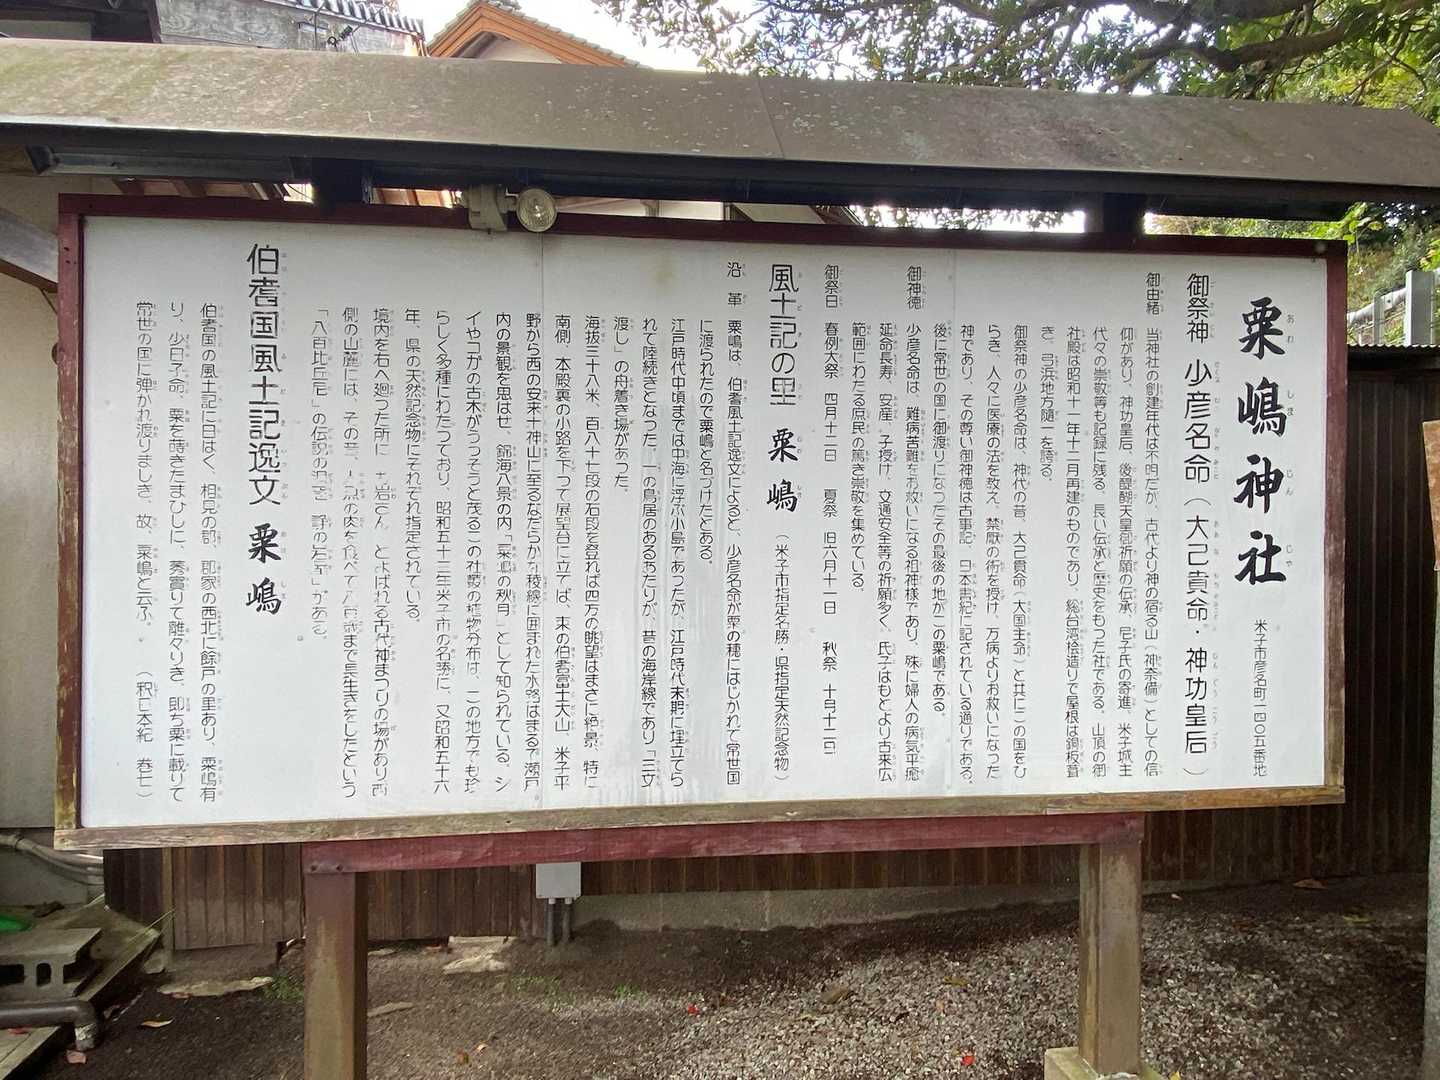 粟嶋神社
米子市彦名町一四〇五番地
御祭神 少彦名命（大己貴命・神功皇后）
御由緒 当神社の創建年代は不明だが、古代より神の宿る山（神奈備）としての信
仰があり、神功皇后、後醍醐天皇御祈願の伝承、尼子氏の寄進、米子城主
代々の崇敬等も記録に残る、長い伝承と歴史をもつた社である。山頂の御
社殿は昭和十一年十二月再建のものであり、総台湾桧造りで屋根は銅板葺
き、弓浜地方随一を誇る。
御祭神の少彦名命は、神代の昔、大己貴命（大国主命）と共にこの国をひ
らき、人々に医療の法を教え、禁厭の術を授け、万病よりお救いになった
神であり、その尊い御神徳は古事記、日本書紀に記されている通りである。
後に常世の国に御渡りになったその最後の地がこの粟嶋である。
御神徳 少彦名命は、難病苦難をお救いになる祖神様であり、殊に婦人の病気平癒
延命長寿、安産、子授け、交通安全等の祈願多く、氏子はもとより古来広
範囲にわたる庶民の篤き崇敬を集めている。
御祭日 春例大祭 四月十二日 夏祭 旧六月十一日 秋祭 十月十二日
風土記の里 粟嶋（米子市指定名勝・県指定天然記念物）
沿革 粟嶋は、伯耆風土記逸文によると、少彦名命が粟の穂にはじかれて常世国
に渡られたので粟嶋と名づけたとある。
江戸時代中頃までは中海に浮ぶ小島であったが、江戸時代末期に埋立てら
れて陸続きとなった。一の鳥居のあるあたりが、昔の海岸線であり「三文
渡し」の舟着き場があった。
海抜三十八米、百八十七段の石段を登れば四方の眺望はまさに絶景、特に
南側、本殿裏の小路を下つて展望台に立てば、東の伯耆富士大山、米子平
野から西の安来十神山に至るなだらかな稜線に囲まれた水路はまるで瀬戸
内の景観を思はせ、錦海八景の内「粟嶋の秋月」として知られている。シ
イやコガの古木がうつそうと茂るこの社叢の植物分布は、この地方でも珍
らしく多種にわたつており、昭和五十三年米子市の名勝に、又昭和五十六
年、県の天然記念物にそれぞれ指定されている。
境内を右へ廻った所に「お岩さん」とよばれる古代神まつりの場があり西
側の山麓には、その昔、人魚の肉を食べて八百歳まで長生きをしたという
「八百比丘尼」の伝説の洞窟「静の岩屋」がある。
伯耆国風土記逸文 粟嶋
伯耆国の風土記に曰はく、相見の郡、郡家の西北に餘戸の里あり、粟嶋有
り、少日子命、粟を蒔きたまひしに、莠實りて離々りき、即ち粟に載りて
常世の国に弾かれ渡りましき、故、粟嶋と云ふ。（釈日本紀 巻七）